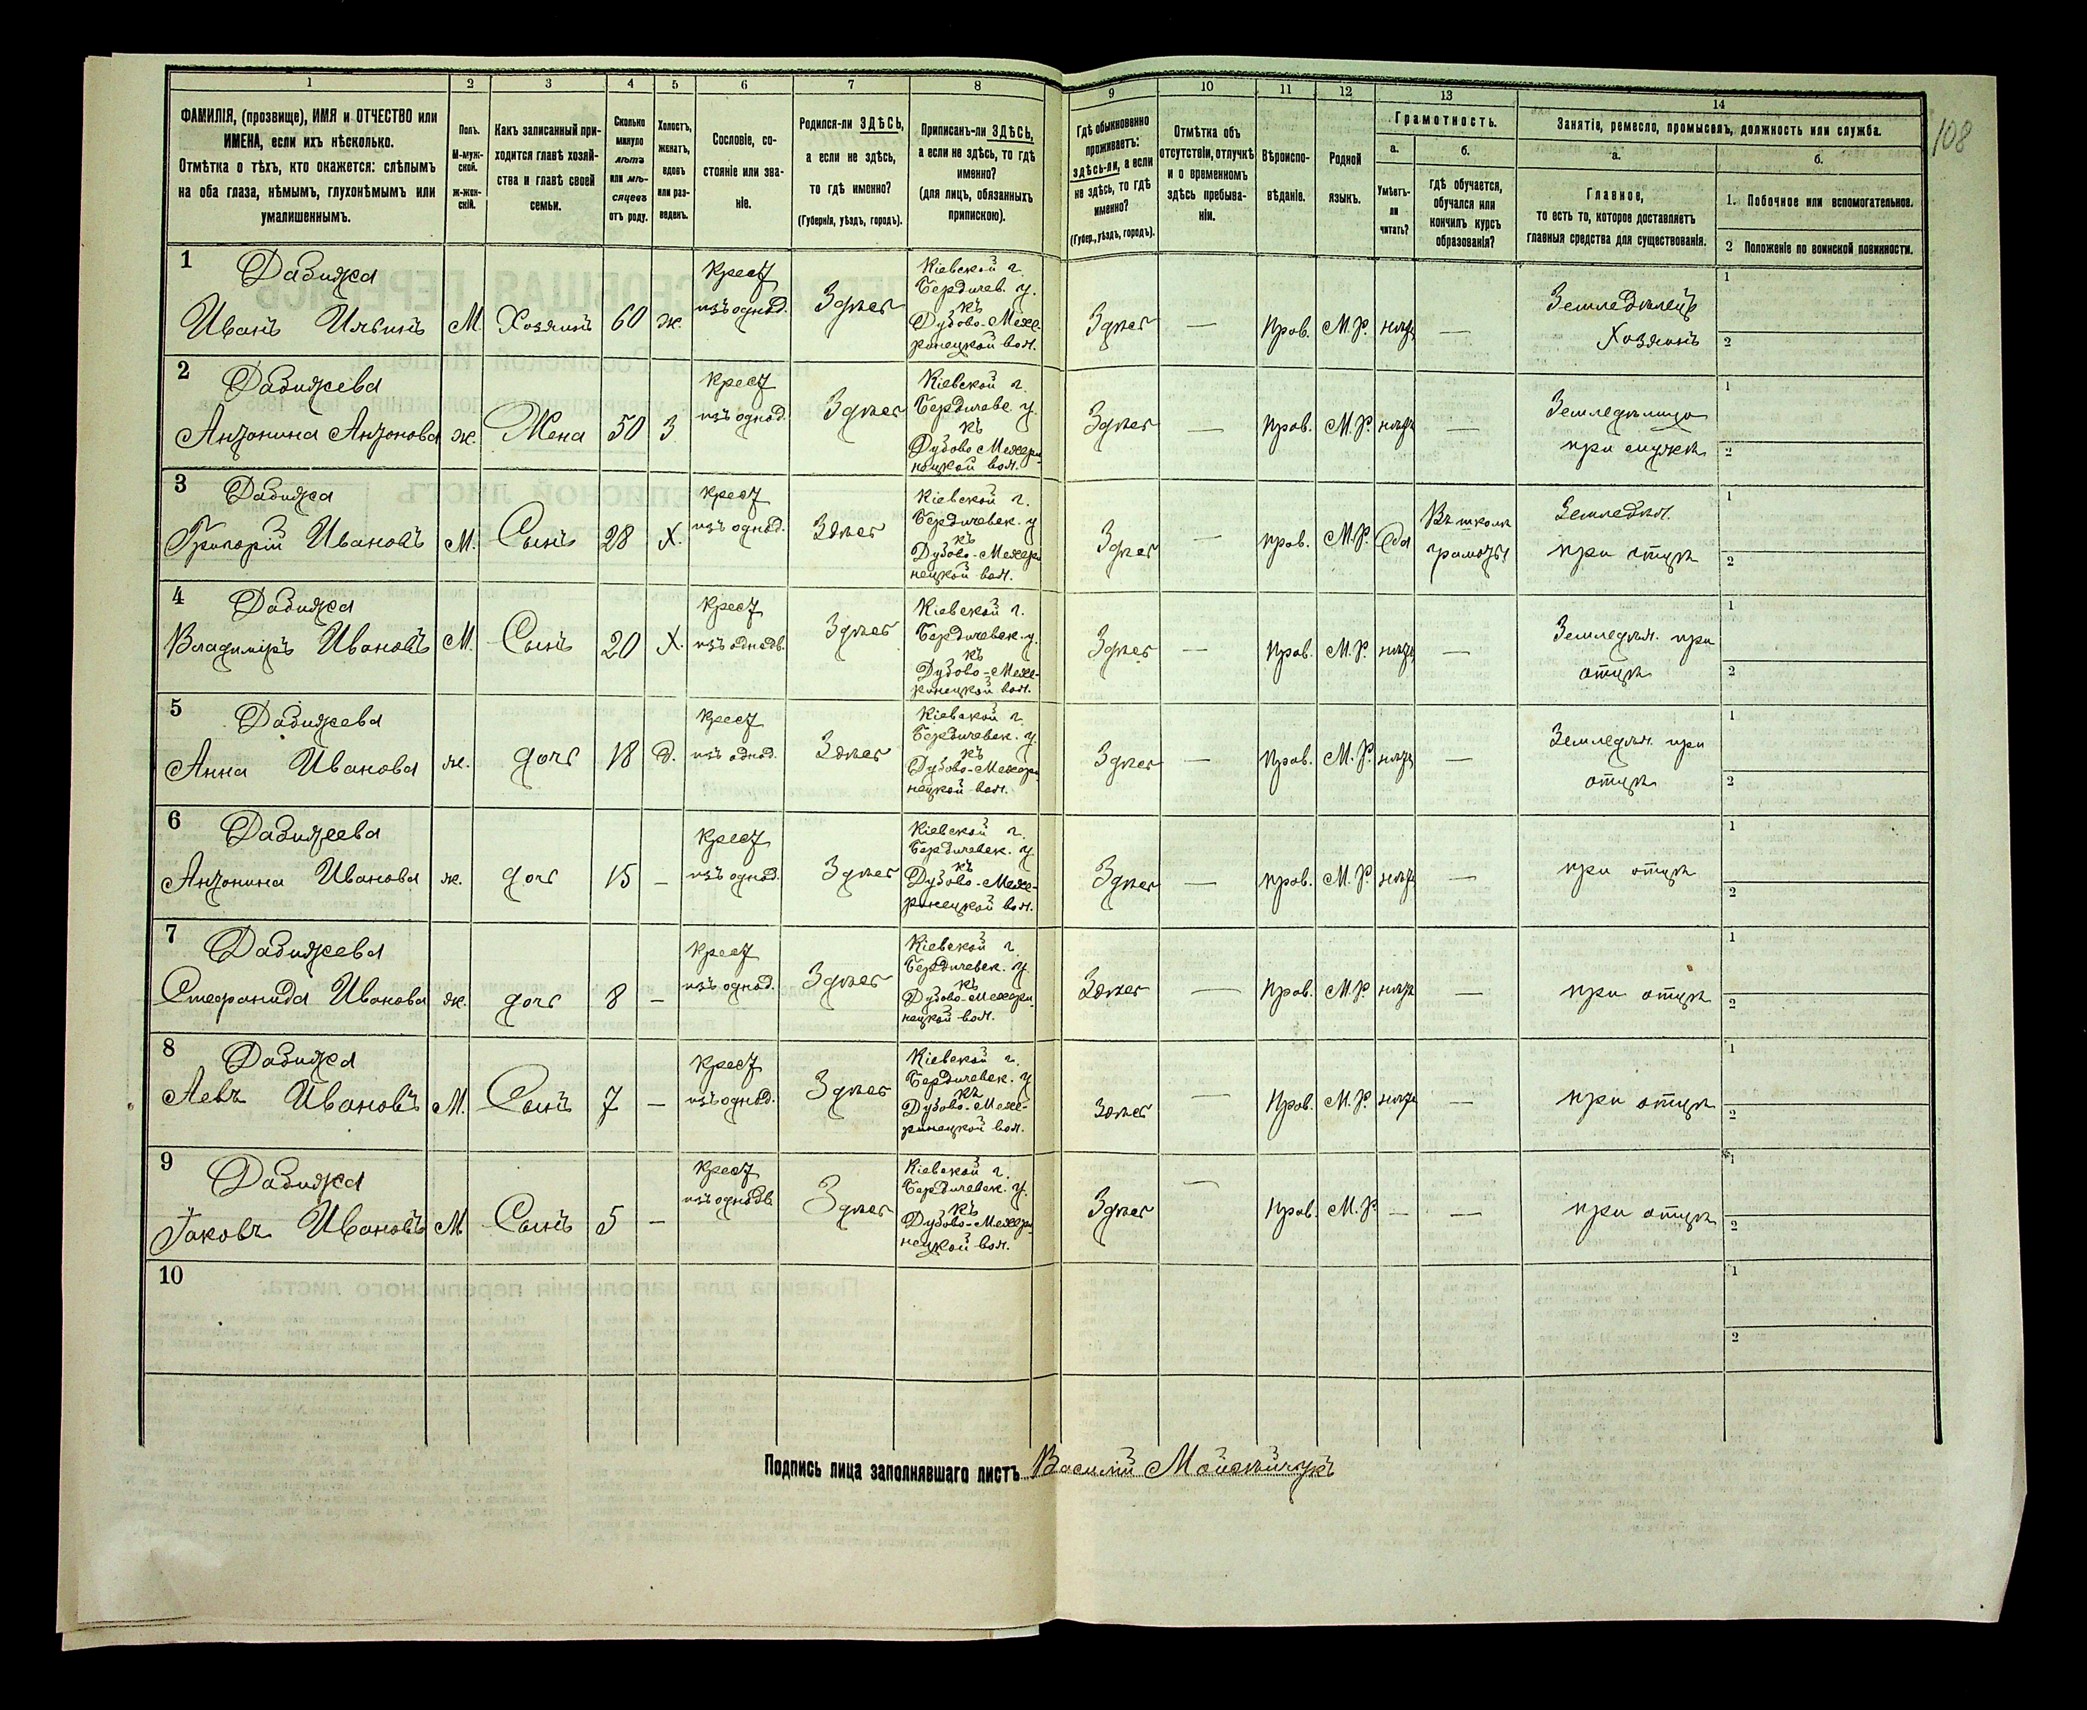 108
1 2 3 4 5 6 7 8 9 10 11 12 13 14
ФАМИЛІЯ, (прозвище), ИМЯ и ОТЧЕСТВО или
ИМЕНА, если ихъ нѣсколько.
Отмѣтка о тѣхъ, кто окажется: слѣпымъ
на оба глаза, нѣмымъ, глухонѣмымъ или
умалишеннымъ.
Полъ.
М-муж-
ской.
ж-жен-
скій.
Какъ записанный при-
ходится главѣ хозяй-
ства и главѣ своей
семьи.
Сколько
минуло
лѣтъ
или мѣ-
сяцевъ
отъ роду.
Холостъ,
женатъ,
вдовъ
или раз-
веденъ.
Сословіе, со-
стояніе или зва-
ніе.
Родился-ли ЗДѢСЬ,
а если не здѣсь,
то гдѣ именно?
(Губернія, уѣздъ, городъ).
Приписанъ-ли ЗДѢСЬ,
а если не здѣсь, то гдѣ
именно?
(для лицъ, обязанныхъ
припискою).
Гдѣ обыкновенно
проживаетъ:
здѣсь-ли, а если
не здѣсь, то гдѣ
именно?
(Губер., уѣздъ, городъ).
Отмѣтка объ
отсутствіи, отлучкѣ
и о временномъ
здѣсь пребыва-
ніи.
Вѣроиспо-
вѣданіе.
Родной
языкъ.
Грамотность.
а.
Умѣетъ-
ли
читать?
б.
гдѣ обучается,
обучался или
кончилъ курсъ
образованія?
Занятіе, ремесло, промыселъ, должность или служба.
а.
Главное,
то есть то, которое доставляетъ
главныя средства для существованія.
б.
1. Побочное или вспомогательное.
2 Положеніе по воинской повинности.
1
Давижа
Иванъ Ильинъ М. Хозяинъ 60 ж.
Крест
изъ однод.
Здѣсь
Кіевской г.
Бердичев. у.
къ
Дубово-Меже-
ринецкой вол.
Здѣсь — Прав. М.Р. нѣтъ —
Земледѣлецъ
Хозяинъ
1
2
2
Давижева
Антонина Антонова ж. Жена 50 З
Крест
изъ однод.
Здѣсь
Кіевской г.
Бердичевс. у.
къ
Дубово Межери-
нецкой вол.
Здѣсь — Прав. М.Р. нѣтъ —
Земледѣлица
при мужѣ
1
2
3
Давижа
Григорій Ивановъ М. Сынъ 28 Х.
Крест
изъ однод.
Здѣсь
Кіевской г.
Бердичевск. у
къ
Дубово-Межери
нецкой вол.
Здѣсь — прав. М.Р. Да
Въ школѣ
грамоты
Земледѣл.
при отцѣ
1
2
4
Давижа
Владиміръ Ивановъ М. Сынъ 20 Х.
Крест
изъ однодв.
Здѣсь
Кіевской г.
Бердичевск. у.
къ
Дубово-Меже-
ринецкой вол.
Здѣсь — Прав. М.Р. нѣтъ —
Земледѣл. при
отцѣ
1
2
5
Давижева
Анна Иванова ж. дочь 18 д.
Крест
изъ однод.
Здѣсь
Кіевской г.
Бердичевск. у
къ
Дубово-Межери
нецкой вол.
Здѣсь — Прав. М.Р. нѣтъ —
Земледѣл. при
отцѣ
1
2
6
Давижеева
Антонина Иванова ж. дочь 15 —
Крест
изъ однод.
Здѣсь
Кіевской г.
Бердичевск. у.
къ
Дубово-Меже-
ринецкой вол.
Здѣсь — прав. М.Р. нѣтъ —
при отцѣ
1
2
7
Давижева
Стефанида Иванова ж. дочь 8 —
Крест
изъ однод.
Здѣсь
Кіевской г.
Бердичевск. у.
къ
Дубово-Межери-
нецкой вол.
Здѣсь — Прав. М.Р. нѣтъ —
при отцѣ
1
2
8
Давижа
Левъ Ивановъ М. Сынъ 7 —
Крест
изъ однод.
Здѣсь
Кіевской г.
Бердичевск. у
къ
Дубово-Меже-
ринецкой вол.
здѣсь — Прав. М.Р. нѣтъ —
при отцѣ
1
2
9
Давижа
Іаковъ Ивановъ М. Сынъ 5 —
Крест
изъ однодв
Здѣсь
Кіевской г.
Бердичевск. у.
къ
Дубово-Межери
нецкой вол.
Здѣсь — Прав. М.Р. — —
при отцѣ
1
2
10
1
2
Подпись лица заполнявшаго листъ Василій